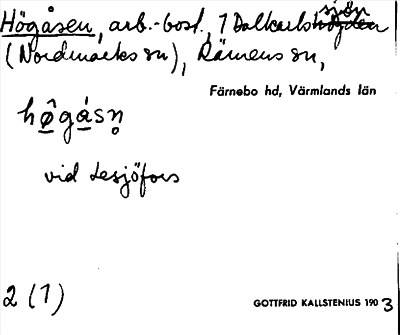 Högåsen, arb.-bost., 1 Dalkarlssjön
(Nordmarks sn), Rämens sn,
Färnebo hd, Värmlands län
hø̂gásn̥
vid Lesjöfors
2 (1)
GOTTFRID KALLSTENIUS 1903